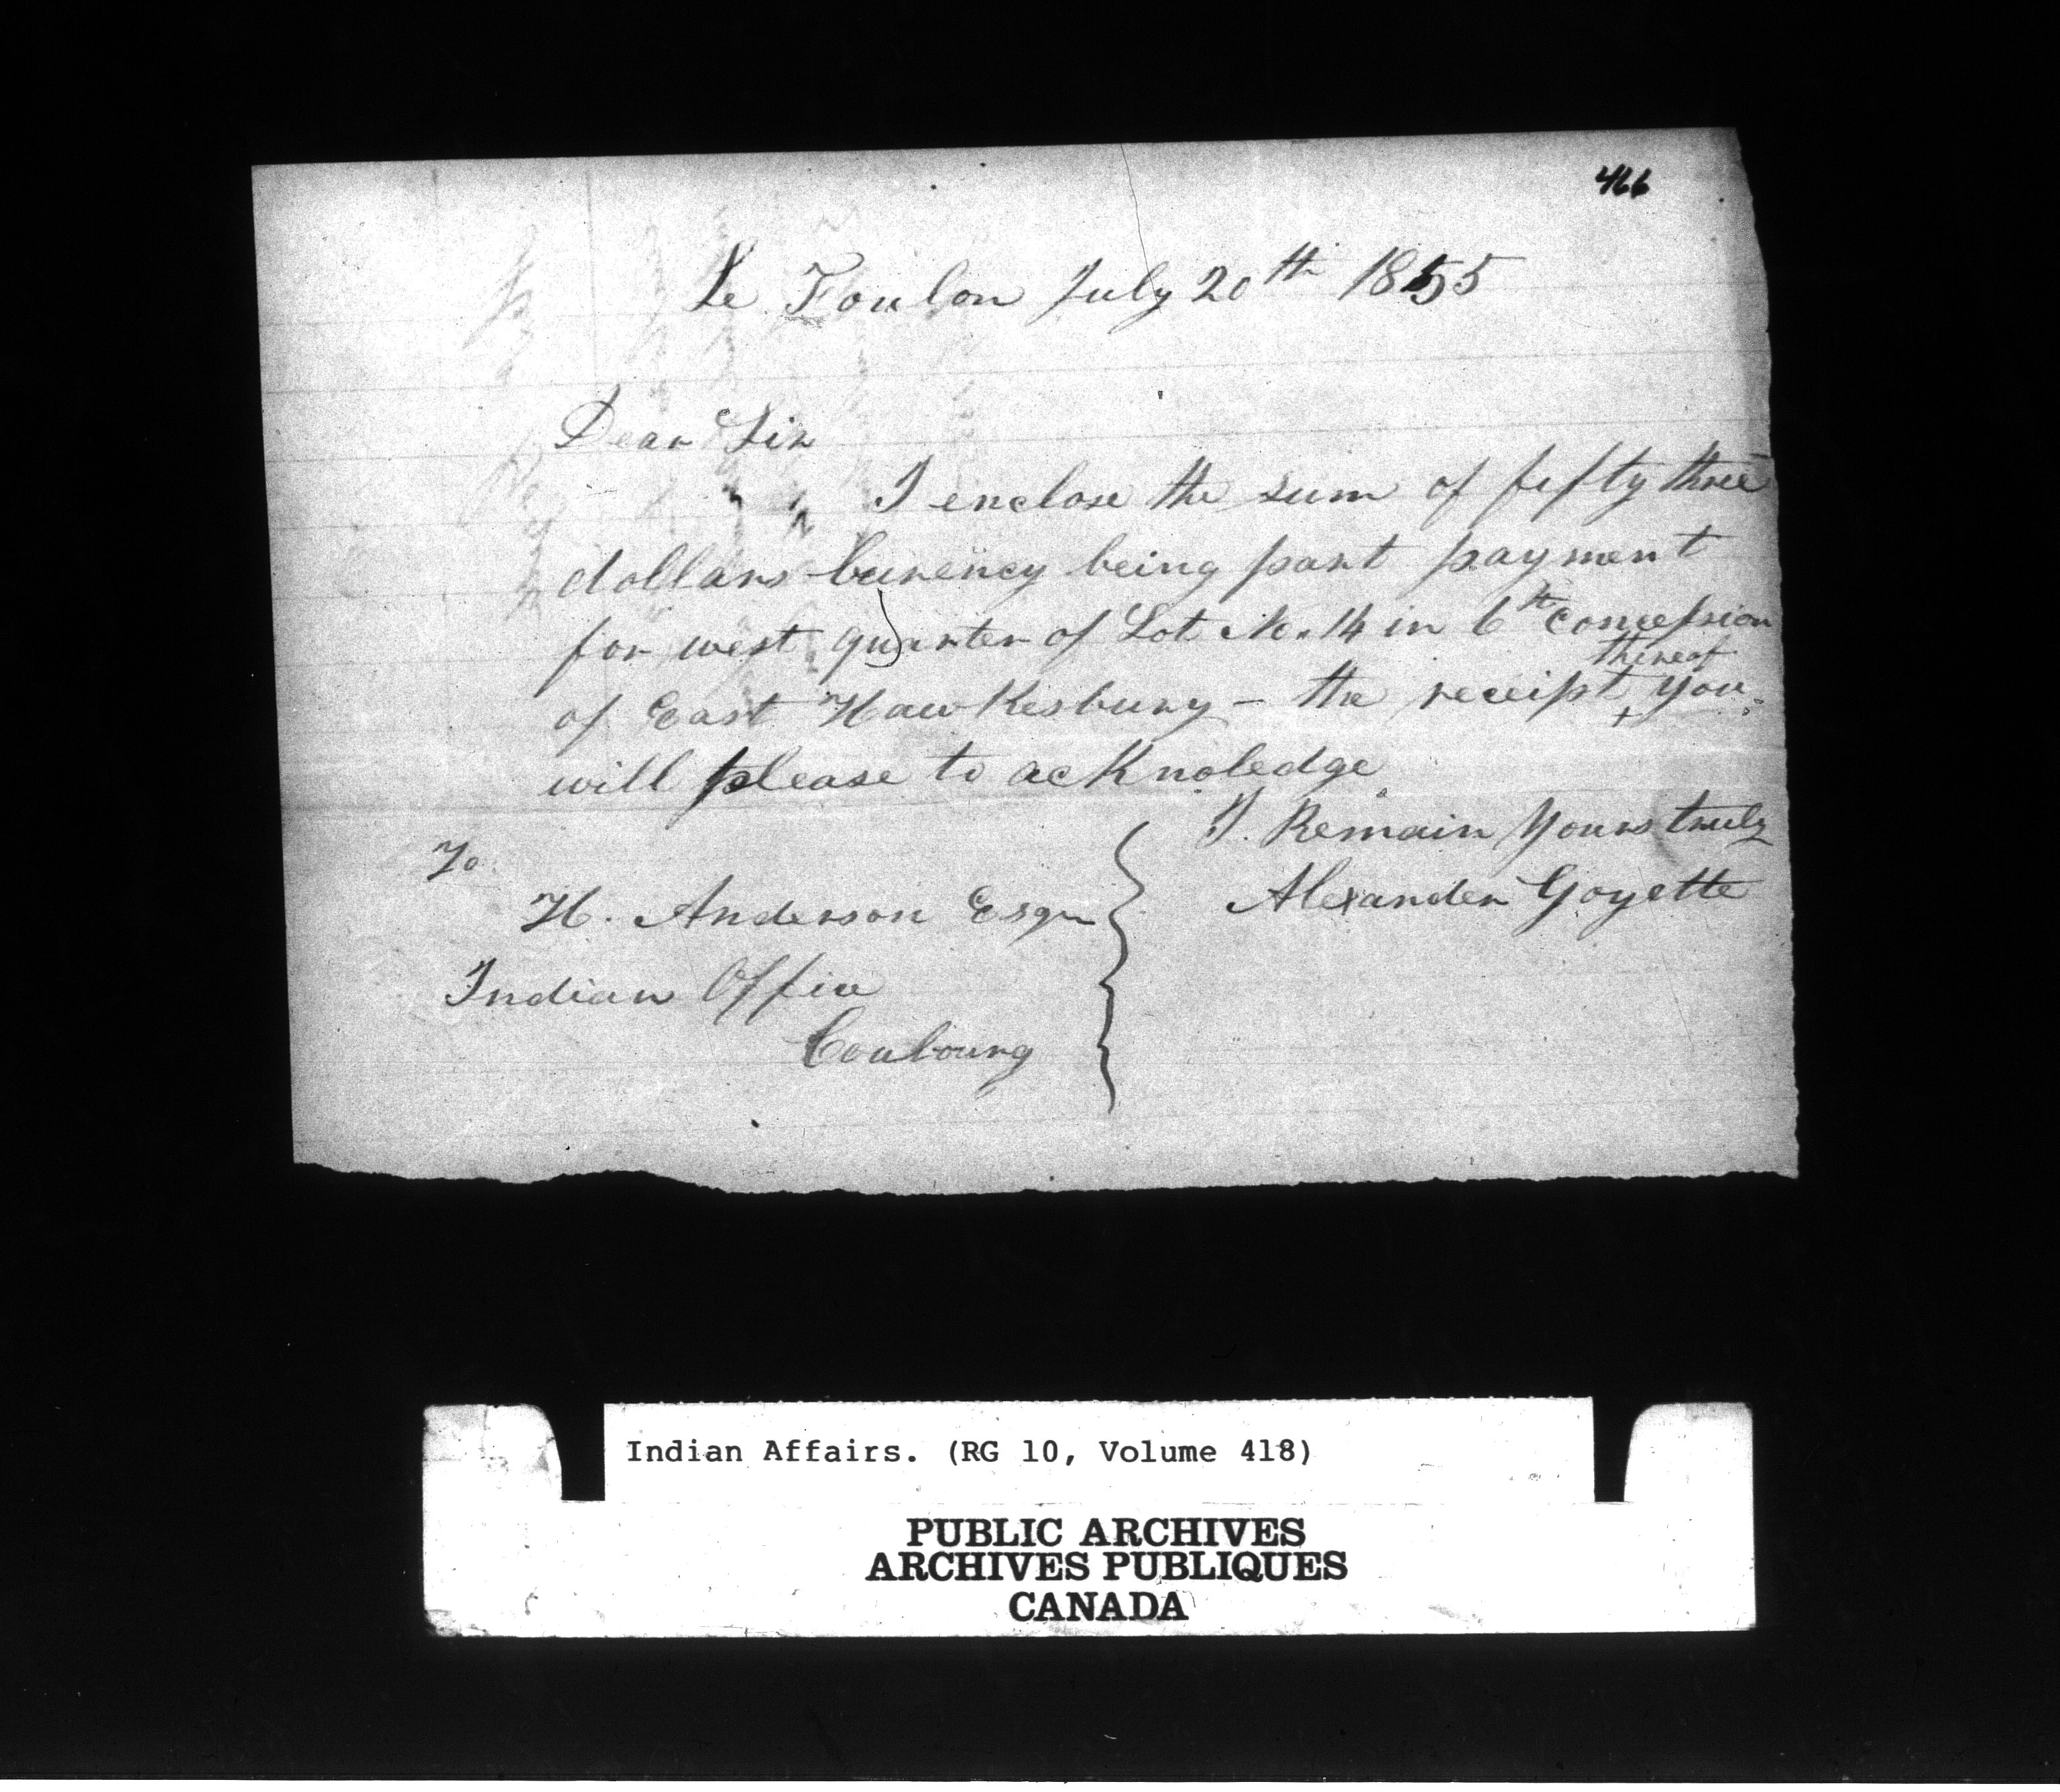 466
Le Foulon July 20th 1855
Dear Sir
I enclose the sum of fifty three
dollars Curency being part payment
for west quarter of Lot No. 14 in 6th Concession
of East Hawkesbury – the receipt thereof you
will please to acKnoledge
I. Remain Yours truly
Alexander Goyette
To
H. Anderson Esqr
Indian Office
Coubourg
Indian Affairs. (RG 10, Volume 418)
PUBLIC ARCHIVES
ARCHIVES PUBLIQUES
CANADA